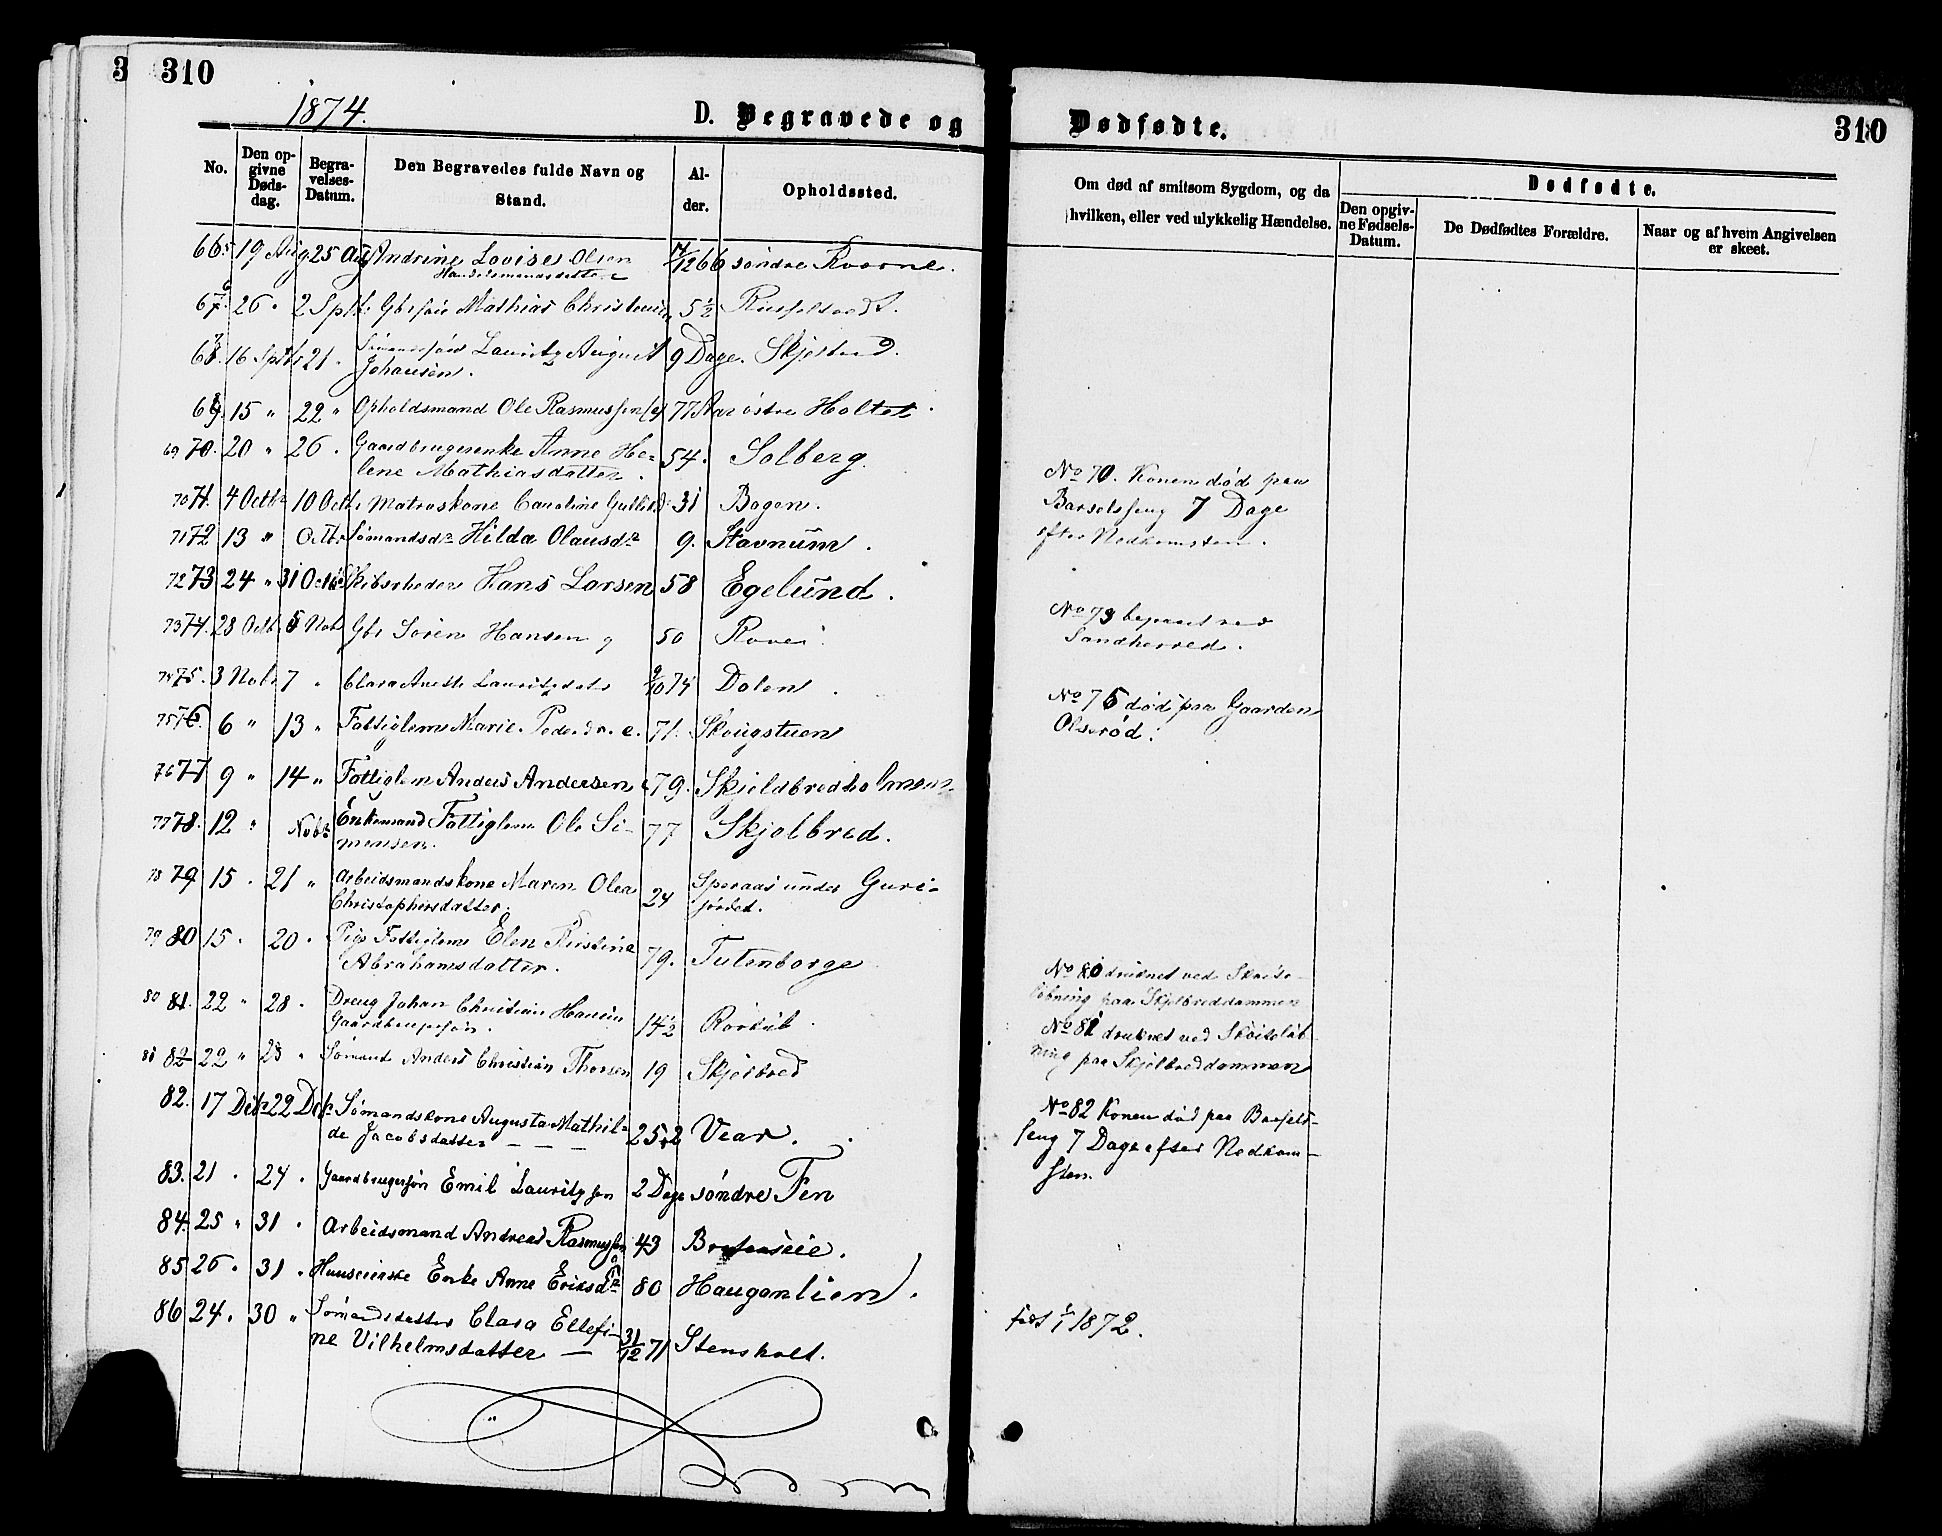 3 310
1874.
D. Begravede og Dødfødte.
310
No.
Den opgivne Dødsdag.
Begravelses-Datum.
Den Begravedes fulde Navn og Stand.
Alder.
Opholdssted.
Om død af smitsom Sygdom, og da hvilken, eller ved ulykkelig Hændelse.
Dødfødte.
Den opgivne Fødsels-Datum.
De Dødfødtes Forældre.
Naar og af hvem Angivelsen er skeet.
19 Aug 25 Aug Andrine Lovise Olsen 66 søndre
26 " 2 Sptbr Mathias 5½
16 Sptbr 21. Lauritz August 9 Dage.
Johansen.
15 " 22 " Opholdsmand Ole Rasmussen 77 Aar østre Holtet
69 70. 20 " 26. Gaardbrugerenke Anne He- 54. Solberg.
lene Mathiasdatter.
70 71. 4 Octbr 10 Octbr Matroskone Caroline 31 Bogen.
71 72 13 " Octbr Sømandsdr Hilda Olausdr 9. Stavnum.
72 73 24 " 31 Octbr Skibsrheder Hans Larsen 58 Egelund.
73 74. 28 Octb 5 Nob Gbr Søren Hansen 50
74 75. 3 Nobr 7 " Clara 74 Dalen.
75 76. 6 " 13 " Fattiglem Marie 71. Skougstuen
76 77 9 " 14 " Fattiglem Anders Andersen 79. Skjeldbredholmen
77 78. 12 " Nobr Enkemand Fattiglem Ole Si- 77 Skjelbred.
mensen.
78 79 15. 21 " Arbeidsmandskone Maren Olea 24 under Guri-
Christophersdatter. jordet.
79 80 15. 20. Pige Fattiglem Elen Kirstine 79. Tutenborge
Abrahamsdatter.
80 81. 22 " 28. Dreng Johan Christian Hansen 14½
81 82 22 " 28 " Sømand Anders Christian Thorsen 19 Skjelbred
82. 17 Debr 22 Debr Sømandskone Augusta Mathil- 25 Vear.
de Jacobsdatter
83. 21. 24. Gaardbrugersøn Emil Lauritzsen 2 Dage søndre Fen
84. 25 " 31. Arbeidsmand Andreas Rasmussen 43
85 26. 31. Enke Anne Eriksdr 80 Hauganlien.
86 24. 30 " Sømandsdatter Clara Ellefi-
ne Vilhelmsdatter 31/12 71 Stensholt.
No 70. Konen død paa
Barselsseng 7 Dage
efter Nedkomsten.
No 73 begravet ved
Sandherred.
No 75 død paa Gaarden
Olsrød.
No 80 druknet ved Skøite-
løbning paa Skjelbreddammen
No 81 druknet ved Skøiteløb-
ning paa Skjelbreddammen
No 82 Konen død paa Barsels-
seng 7 Dage efter Nedkom-
sten.
født 1/1 1872.